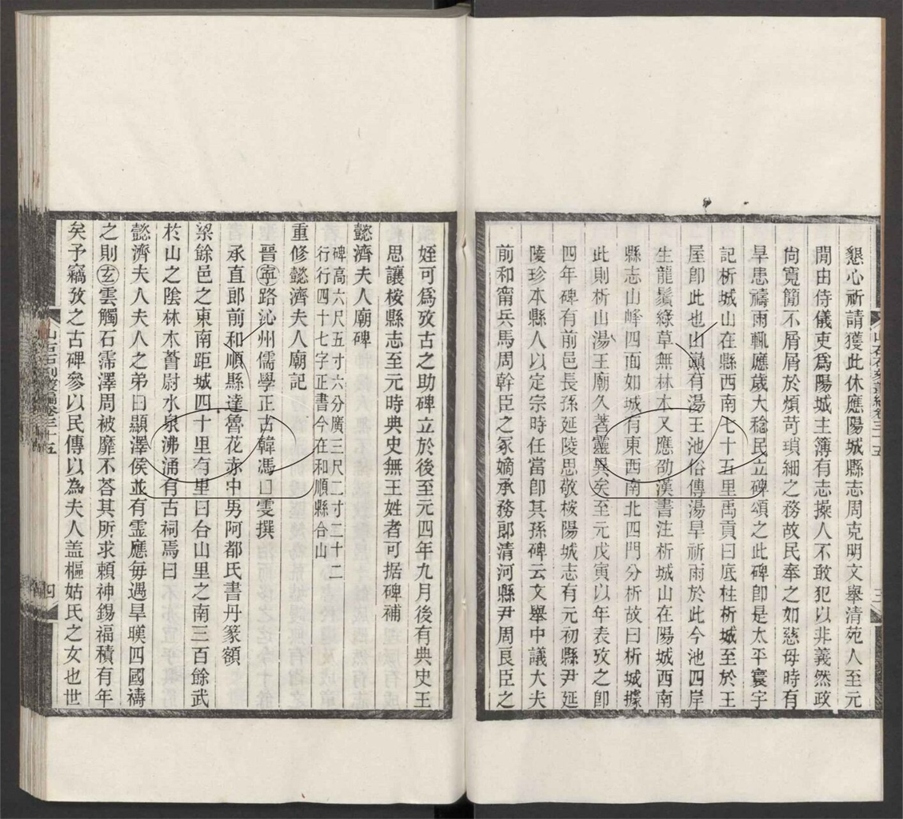 懇心祈請獲此休應陽城縣志周克明文舉清苑人至元
間由侍儀吏爲陽城主簿有志操人不敢犯以非義然政
尙寬簡不屑屑於煩苛瑣細之務故民奉之如慈母時有
旱患禱雨輒應歲大稔民立碑頌之此碑卽是太平寰宇
記析城山在縣西南七十五里禹貢曰底柱析城至於王
屋卽此也山巔有湯王池俗傳湯旱祈雨於此今池四岸
生龍鬚綠草無林木又應劭漢書注析城山在陽城西南
縣志山峰四面如城有東西南北四門分析故曰析城據
此則析山湯王廟久著靈異矣至元戊寅以年表攷之卽
四年碑有前邑長孫延陵思敬桉陽城志有元初縣尹延
陵珍本縣人以定宗時任當卽其孫碑云文舉中議大夫
前和甯兵馬周幹臣之冢嫡承務郎清河縣尹周良臣之
姪可爲攷古之助碑立於後至元四年九月後有典史王
思讓桉縣志至元時典史無王姓者可据碑補
懿濟夫人廟碑
碑高六尺五寸六分廣三尺二寸二十二
行行四十七字正書今在和順縣合山
重修懿濟夫人廟記
晉寧路沁州儒學正古韓馮□雯撰
承直郎前和順縣達魯花赤中男阿都氏書丹篆額
梁餘邑之東南距城四十里有里曰台山里之南三百餘武
於山之陰林木蒼尉水泉沸涌有古祠焉曰
懿濟夫人夫人之弟曰顯澤侯並有霊應每遇旱暵四國禱
之則玄雲觸石霈澤周被靡不荅其所求賴神錫福積有年
矣予竊攷之古碑參以民傳以為夫人盖樞姑氏之女也世
四